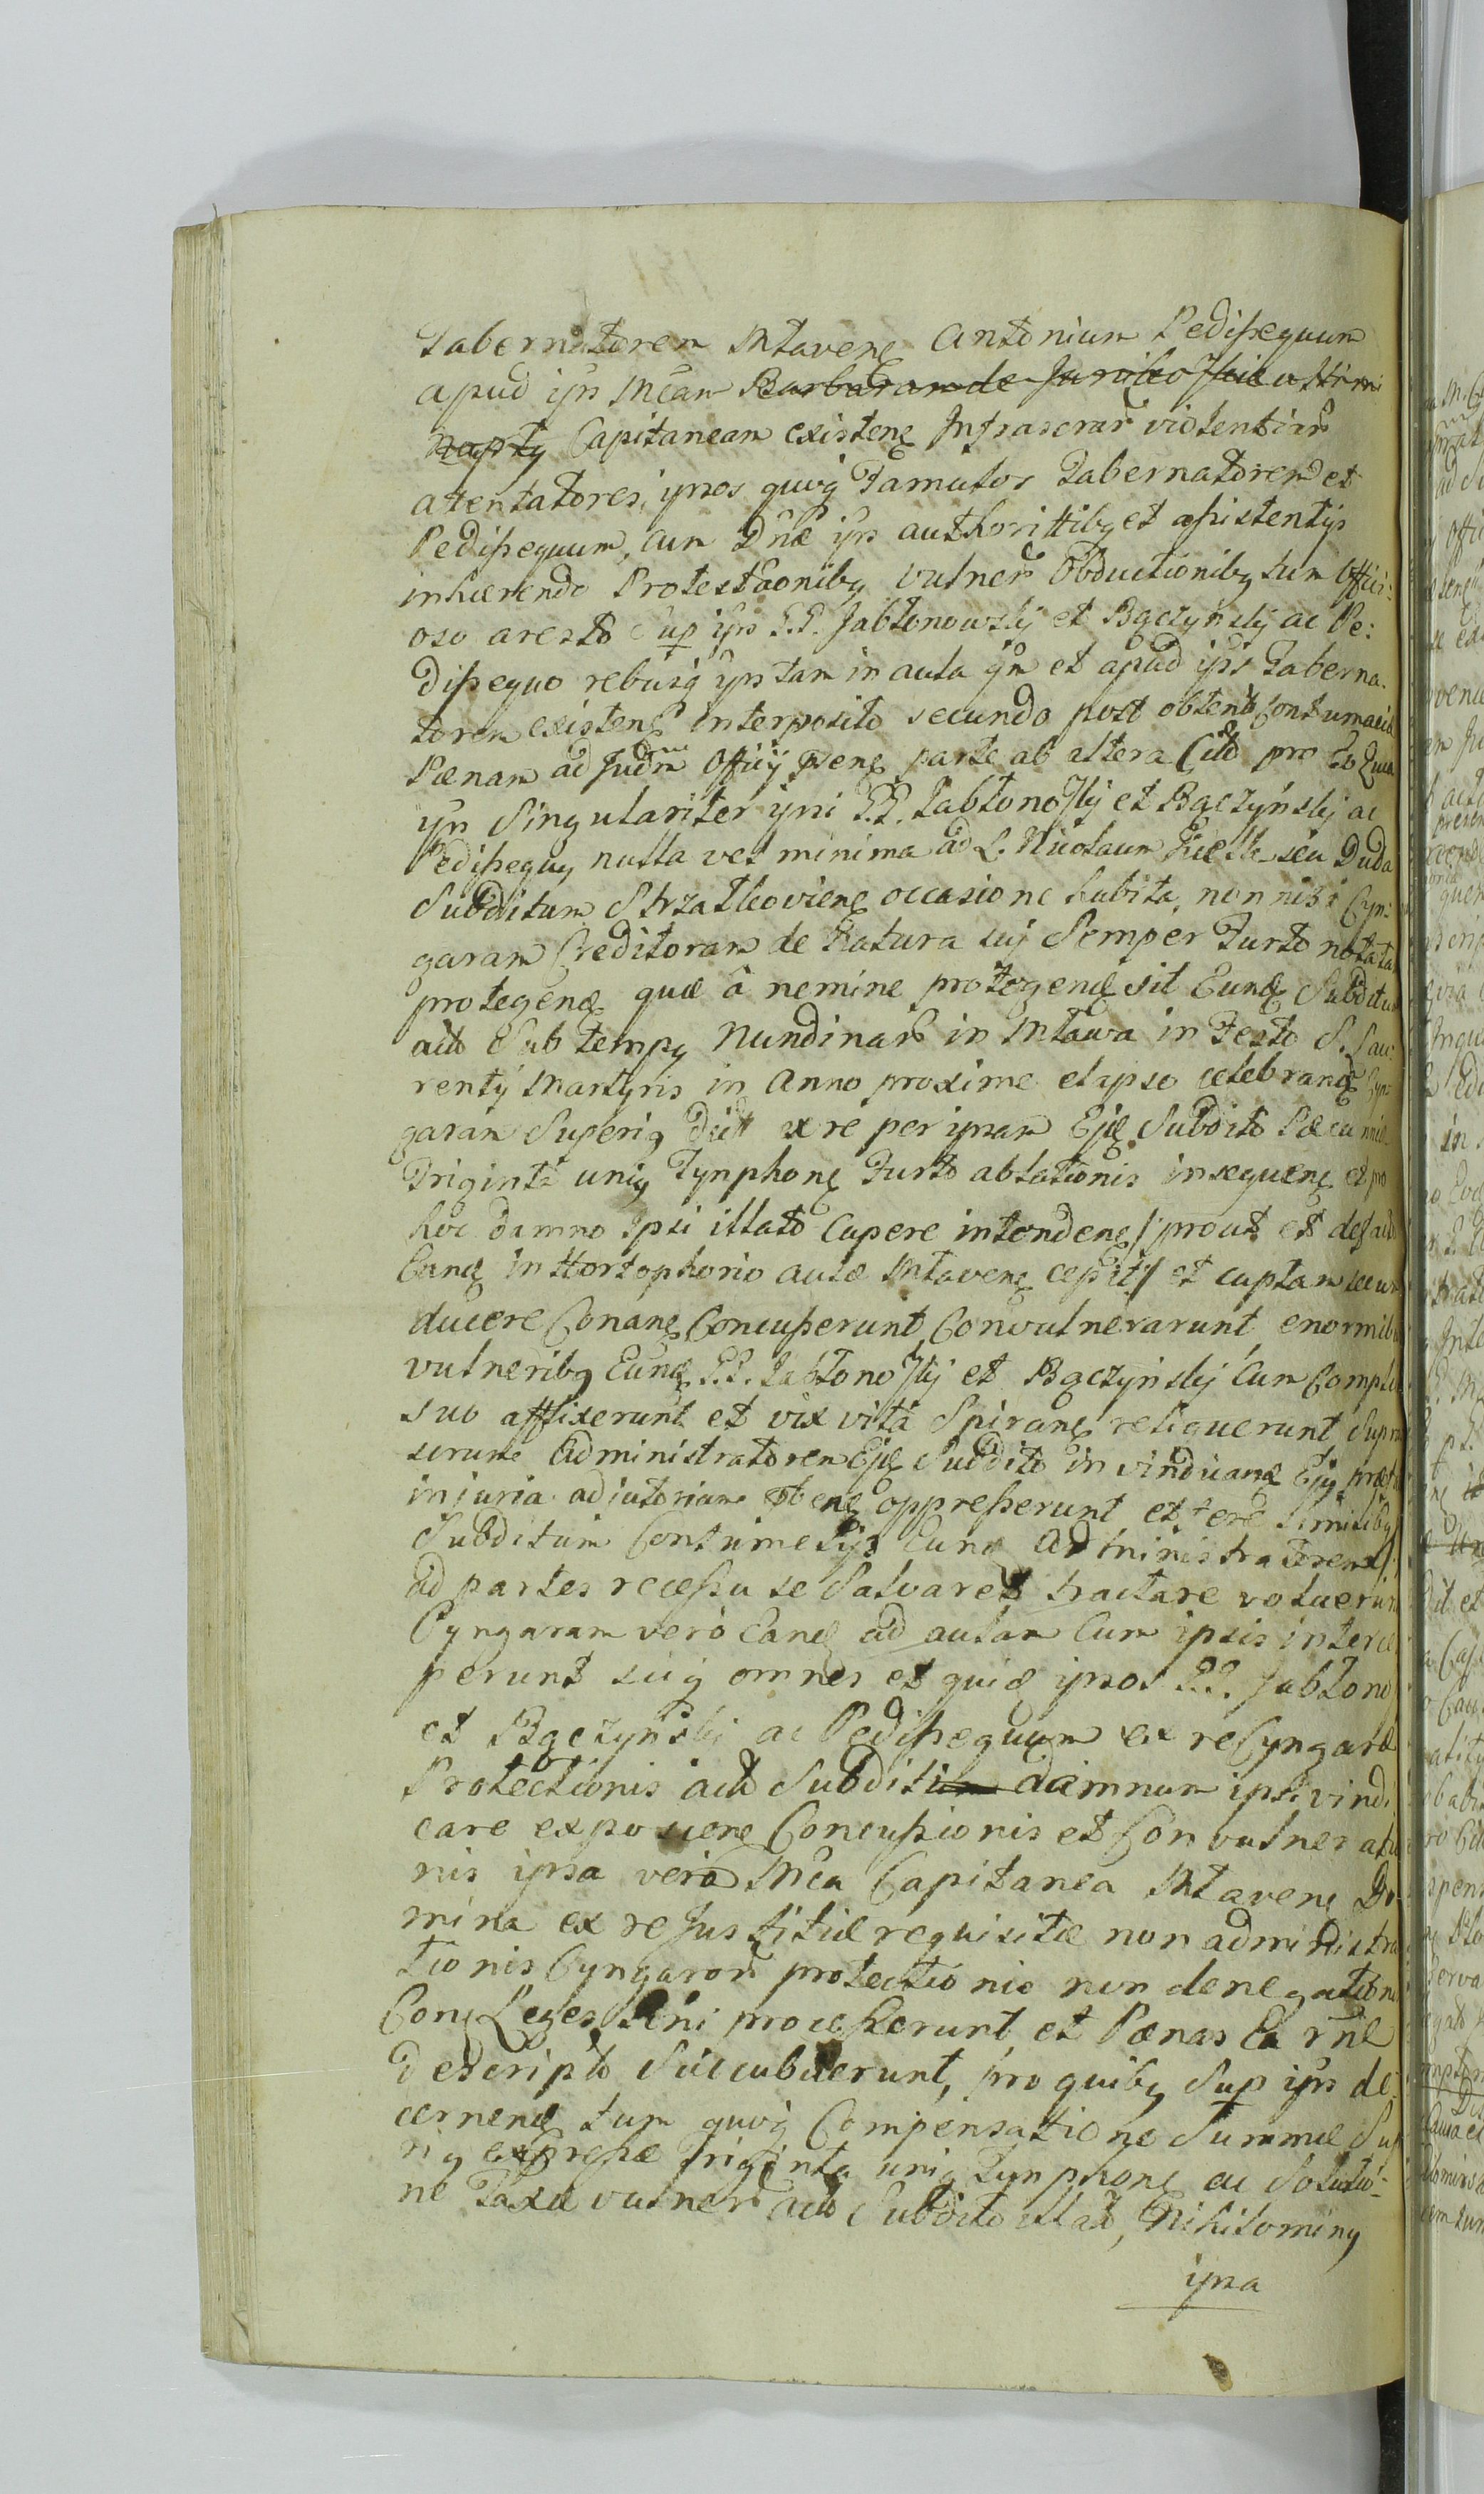 Tabernatorem Mlavenę Antonium Pedissequum
apud ips Mcam Barbaram de
Capitaneam existenę Infrascrar violentiar
attentatores, ipsos quoq Famulos Tabernatorem et
Pedissequum, cum Dnæ ips authorittibq et assistentijs
inhærendo Protestaonibq vulner Obductionibq tum Offici:
oso aresto sup ips P.P. Jabłonowskij et Bączynskij ac Pe:
dissequo rebusq ips tam in aula qm et apud ips Taberna-
torem existenę interposito secundo post obtent contumacia
Pænam ad Judm Officij psenę parte ab altera Citt pro Eo Quia
ips Singulariter ipsi P.P. Jabłonoskij et Bączyńskij ac
Pedissequq nulla vel minima ad L. Nicolaum seu Duda
Subditum Strzałkovienę occasione habita, non nisi Cyn:
garam Creditoram de Natura sui Semper Furto notata
protegenę quæ â nemine protegenę sit Eundę Subditum
acto Sub tempq Nundinar in Mława in Festo S. Lau:
rentij Martyris in Anno proxime elapso celebranę Cyn
garam Superiq dict ex re per ipsam Ejdę Subdito Pæcuniæ
Triginta uniq Tynphonę Furto ablationis insequenę et pro
hoc damno ipsi illato Capere intendenę / prout et de facto
Eandę in Hortophorio aulæ Mlavenę cepit / et captam secum
ducere Conanę Concusserunt, Convulnerarunt enormibq
vulneribq Eundę P.P. Jabłonoskij et Bączyńskij cum Compli
suo affixerunt et vix vitâ Spiranę reliquerunt Supra
scrum Administratorem Ejdę Subdito in vindicanę Ejq
injuria adjutorium oppresserunt et fere Similibq
Subditum Contumelijs Eundę Administratorem /
ad partes recessu se Salvaret tractare voluerunt
Cyngaram verò Eandę ad aulam Cum ipsis interce
perunt sicq omnes et quidę ipsos P.P. Jabłono
et Bączyński ac Pedissequum ex re Cyngaræ
Protectionis acto Subditum damnum ipsi vindi
care exposcenę Concussionis et Convulneratio
nis ipsa verò Mca Capitanea Mlavenę Do-
mina ex re Justitiæ requisitæ non administra
tionis Cyngaror protectionis non denegatione
Conę Leges Rni processerunt et Pænas Ea rne
descripto Succubuerunt, pro quibq Sup ips de:
cernenę tum quoq Compensatione Summæ Sup
riq expressæ Triginta uniq Tynphonę ac Solutio-
ne Taxæ vulner acto Subdito illat, Nihilominq
ipsa